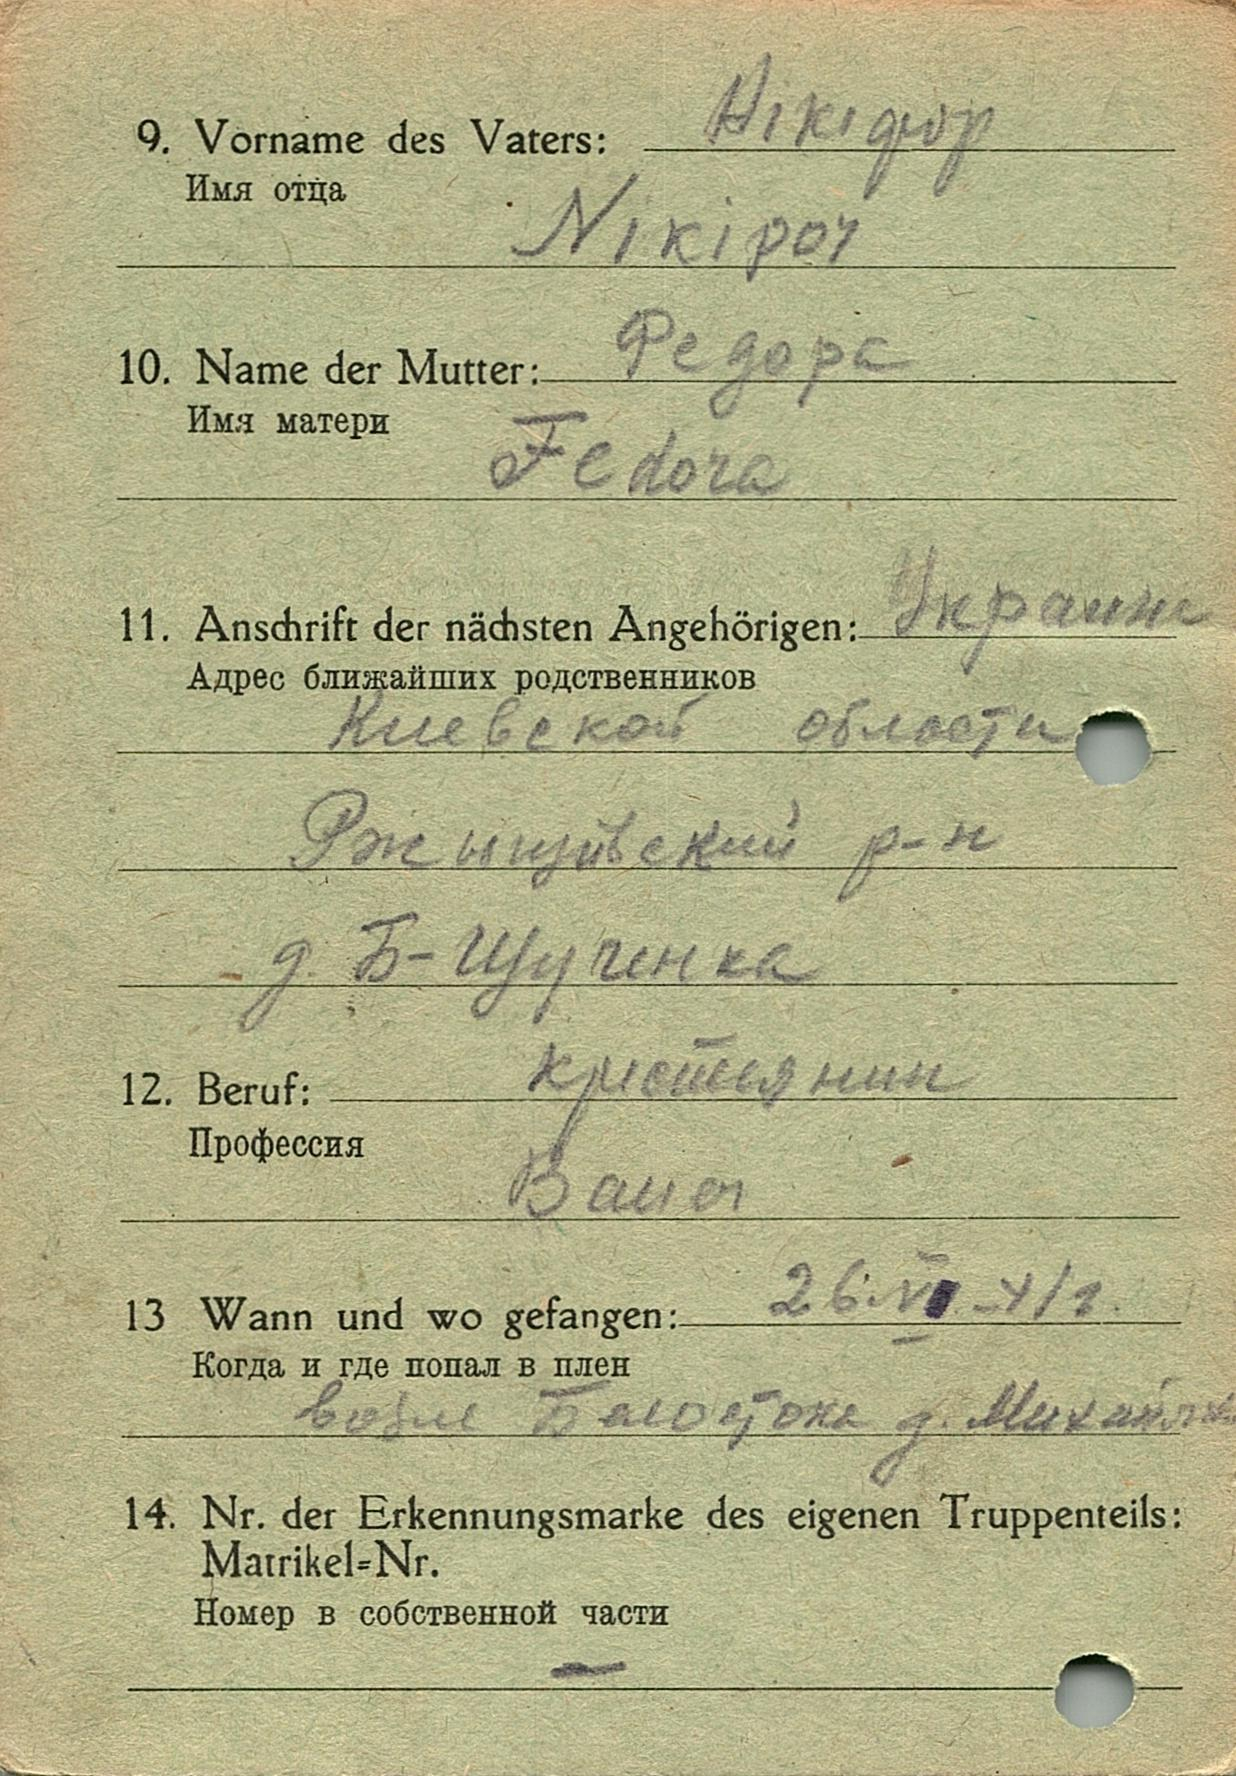 9. Vorname des Vaters: Нікіфор
Имя отца
Nikipor
10. Name der Mutter: Федора
Имя матери
Fedora
11. Anschrift der nächsten Angehörigen: Украина
Адрес ближайших родственников
Киевской области
Ржыщівский р-н
д. Б-Щученка
12. Beruf: крестьянин
Профессия
Bauer
13 Wann und wo gefangen: 26.VI.-41г.
Когда и где попал в плен
возле Белостока д.
14. Nr. der Erkennungsmarke des eigenen Truppenteils:
Matrikel=Nr.
Номер в собственной части
—